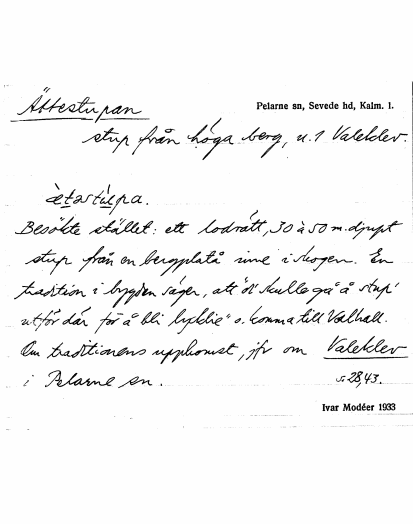 Ättestupan
Pelarne sn, Sevede hd, Kalm. l.
stup från höga berg, u. 1 Valeklev.
ättastupa.
Besökte stället: ett lodrätt, 30 à 50 m. djupt
stup från en bergplatå inne i skogen. En
tradition i bygden säger, att "di skulle gå å stup'
utför där för å bli lyklie" o. komma till Valhall.
Om traditionens upphomst, jfr om Valeklev
i Pelarne sn. s. 28, 43.
Ivar Modéer 1933